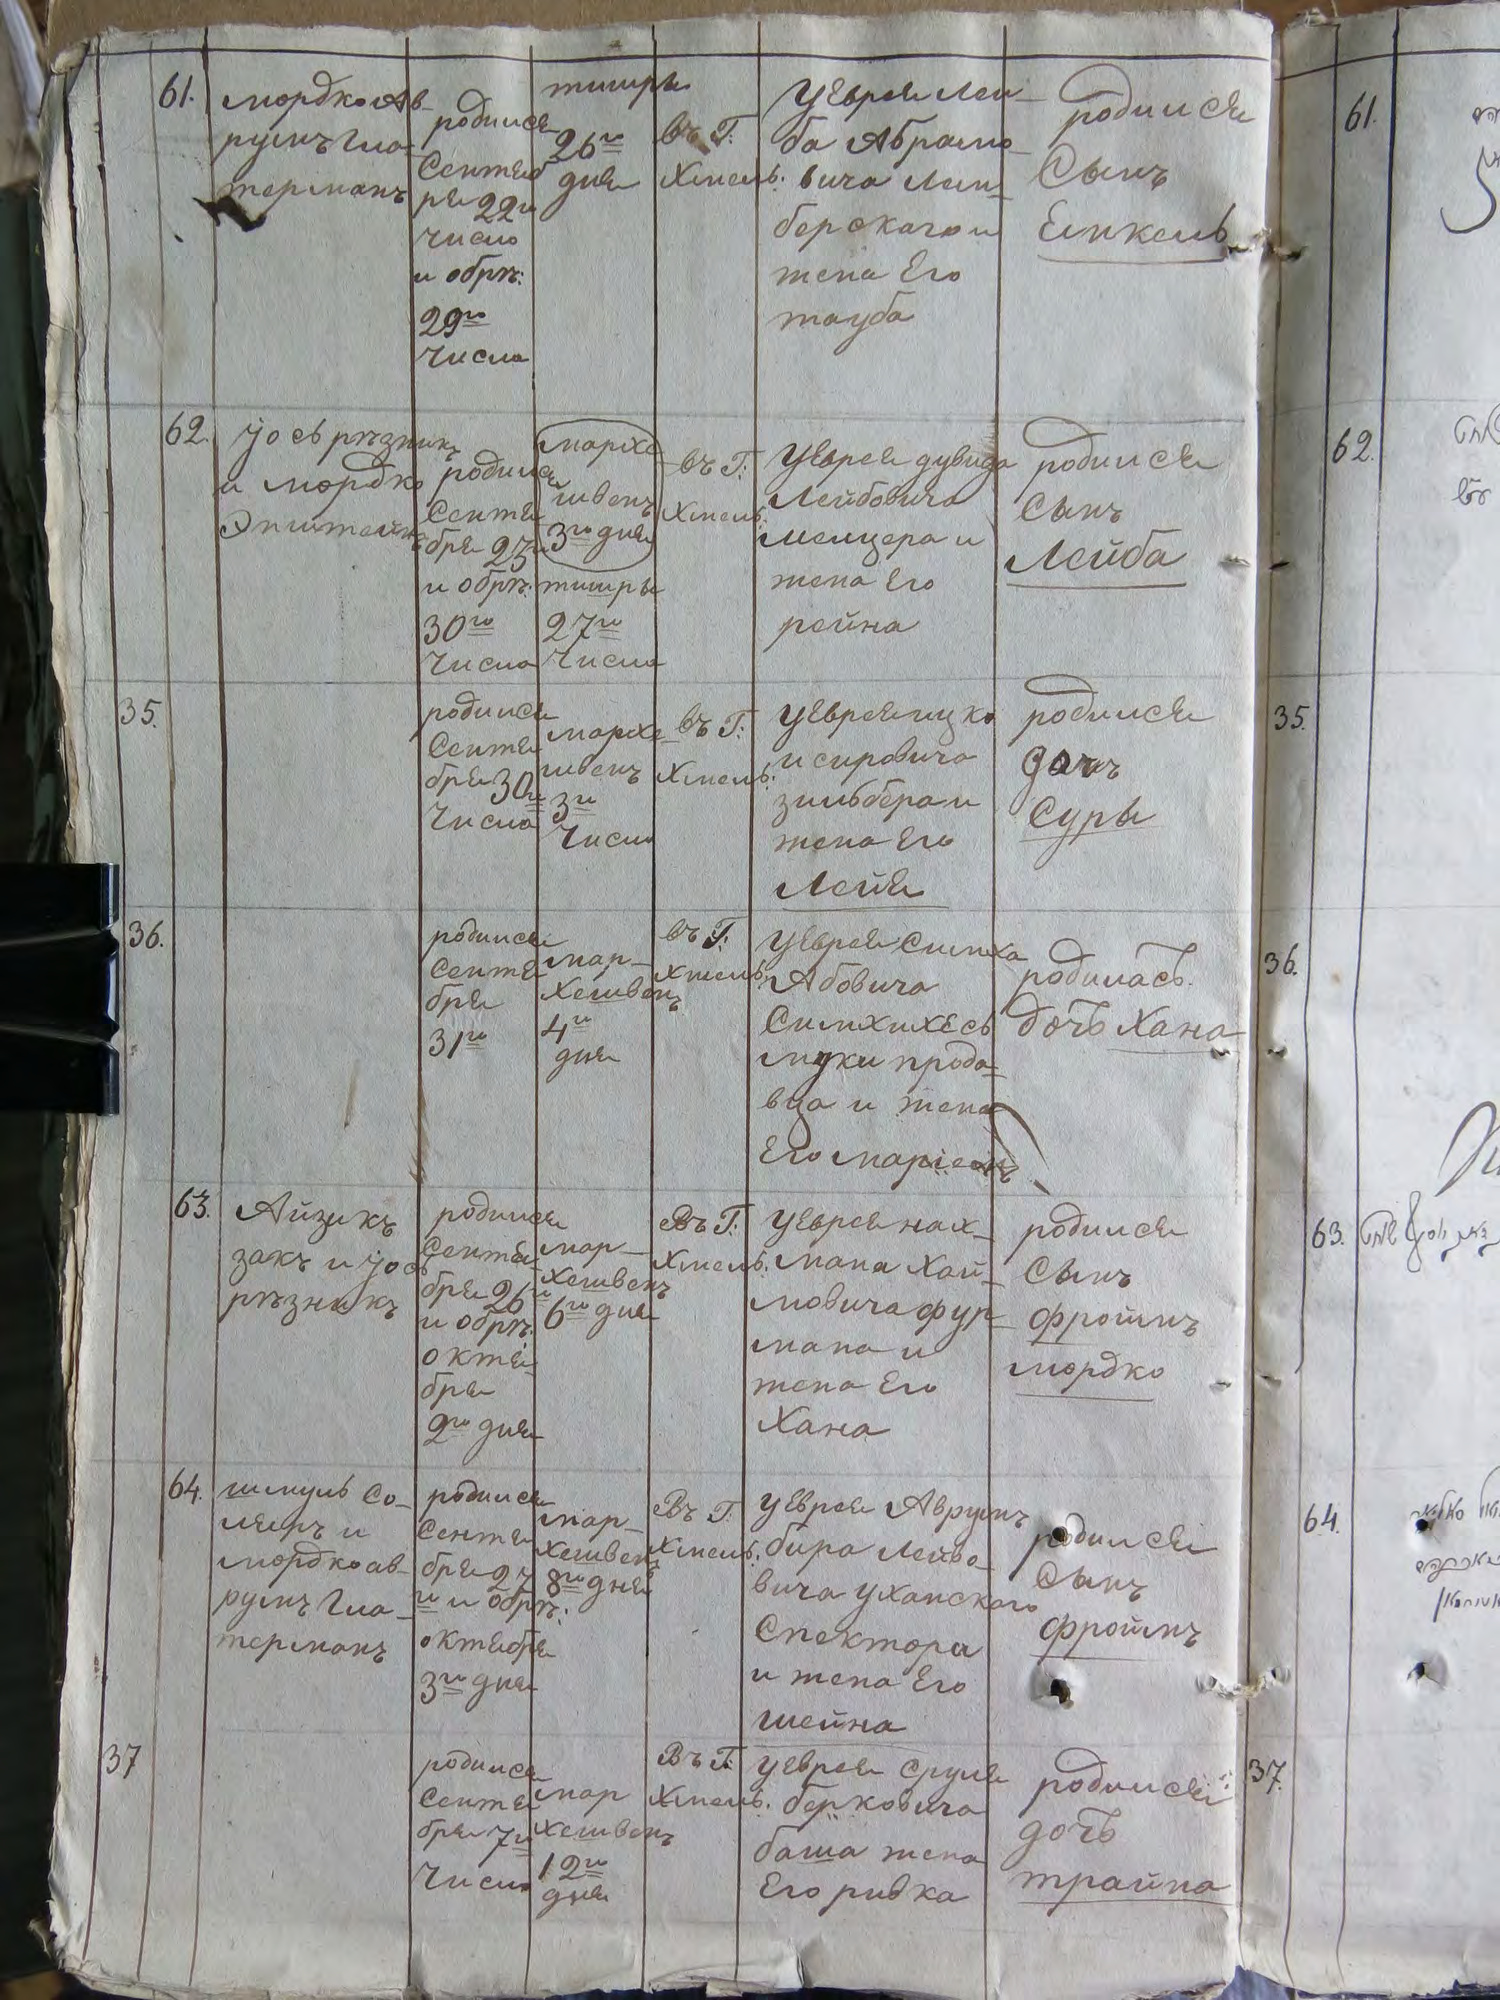 61.
мордко Ав-
румъ Гла-
терманъ
родился
Сентяб
ря 22го
число
и обрѣ:
29го
Числа
тишры
26го
дня
въ Г:
Хмель:
У Еврея Лей-
ба Абрамо-
вича Лем-
берскаго и
жена Его
тауба
родился
Сынъ
Емкель
62.
Йось рѣзникъ
и мордко
Эпштейнъ
родился
Сентя
бря 23го
и обрѣ:
30го
Числа
мархе
швенъ
3го дня
тишры
27го
Числа
въ Г:
Хмель:
У Еврея дувида
Лейбовича
мелцера и
жена Его
рейна
родился
сынъ
Лейба
35.
родился
Сентя
бря 30го
Числа
мархе
швенъ
3го
Числа
въ Г:
Хмель:
У Еврея ицко
и сировича
зильбера и
жена Его
Лейя
родился
дочъ
Суры
36.
родился
Сентя
бря
31го
мар-
Хешвенъ
4го
дня
въ Г:
Хмель:
У Еврея Симха
Абовича
Симхихесь
муки прода-
вца и жена
Его маріемъ
родилась.
дочь Хана
63.
Айзикъ
закъ и Йось
рѣзникъ
родился
Сентя-
бря 26го
и обрѣ:
октя-
бря
2го дня
мар-
Хешвенъ
6го дня
Въ Г:
Хмель:
У Еврея нах-
мана Хай-
мовича фур-
мана и
жена Его
Хана
родился
Сынъ
фроимъ
мордко
64.
шмуль Со-
леръ и
мордко ав-
румъ Гла-
терманъ
родился
Сентя
бря 27
го и обрѣ:
октября
3го дня
мар-
Хешвенъ
8го дня
Въ Г:
Хмель:
У Еврея Аврумъ
бира Лейбо-
вича уханскаго
Спектора
и жена Его
шейна
родился
Сынъ
фроимъ
37
родился
Сентя
бря 7го
Числа
мар
Хешвенъ
12го
дня
Въ Г:
Хмель:
У Еврея Сруля
берковича
баша жена
Его ривка
родился
дочь
трайна
61.
62.
35.
36.
63.
64.
37.